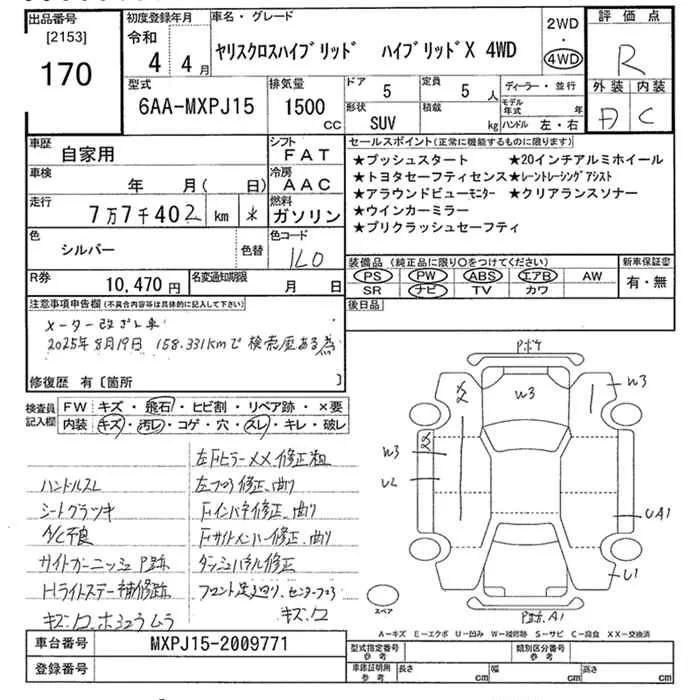 出品番号
[2153]
170
初度登録年月
令和
4年4月
車名・グレード
ヤリスクロスハイブリッド ハイブリッドX 4WD
2WD
・
4WD
評価点
R
外装 内装
D C
型式
6AA-MXPJ15
排気量
1500
CC
ドア
5
定員
5人
形状
SUV
積載
kg
ディーラー・並行
モデル年式 年
ハンドル 左・右
車歴
自家用
シフト
FAT
車検
年 月( 日)
冷房
AAC
走行
7万7千402 km *
燃料
ガソリン
色
シルバー
色替
色コード
1L0
R券
10,470円
名変通知期限
月 日
セールスポイント(正常に機能するものに限ります)
★プッシュスタート ★20インチアルミホイール
★トヨタセーフティセンス★レーントレーシングアシスト
★アラウンドビューモニター ★クリアランスソナー
★ウインカーミラー
★プリクラッシュセーフティ
装備品(純正品に限り○をつけてください)
PS PW ABS エアB AW
SR ナビ TV カワ
新車保証書
有・無
後日品
注意事項申告欄(不具合内容等は具体的に記入して下さい)
メーター改ざん車
2025年8月19日 158.331kmで検索歴ある為
修復歴 有〔箇所 〕
検査員
記入欄
FW キズ・飛石・ヒビ割・リペア跡・×要
内装 キズ・汚レ・コゲ・穴・スレ・キレ・破レ
左Fピラーメメ修正粗
ハンドルスレ 左フロア修正、曲り
シートグラツキ Fインパネ修正、曲り
A/C不良 Fサイドメンバー修正、曲り
サイドガーニッシュP跡 ダッシュパネル修正
Hライトステー補修跡 フロント足廻り、センターフロア
キズ・凹、ホショウムラ キズ・凹
Pボケ
W3
W3
XX
XX
W3
U2
UA1
U1
P跡、A1
スペア
A-キズ E-エクボ U-凹み W-補修跡 S-サビ C-腐食 XX-交換済
車台番号
MXPJ15-2009771
登録番号
型式指定番号
参考
類別区分番号
参考
車庫証明用
参考
長さ cm 幅 cm 高さ cm